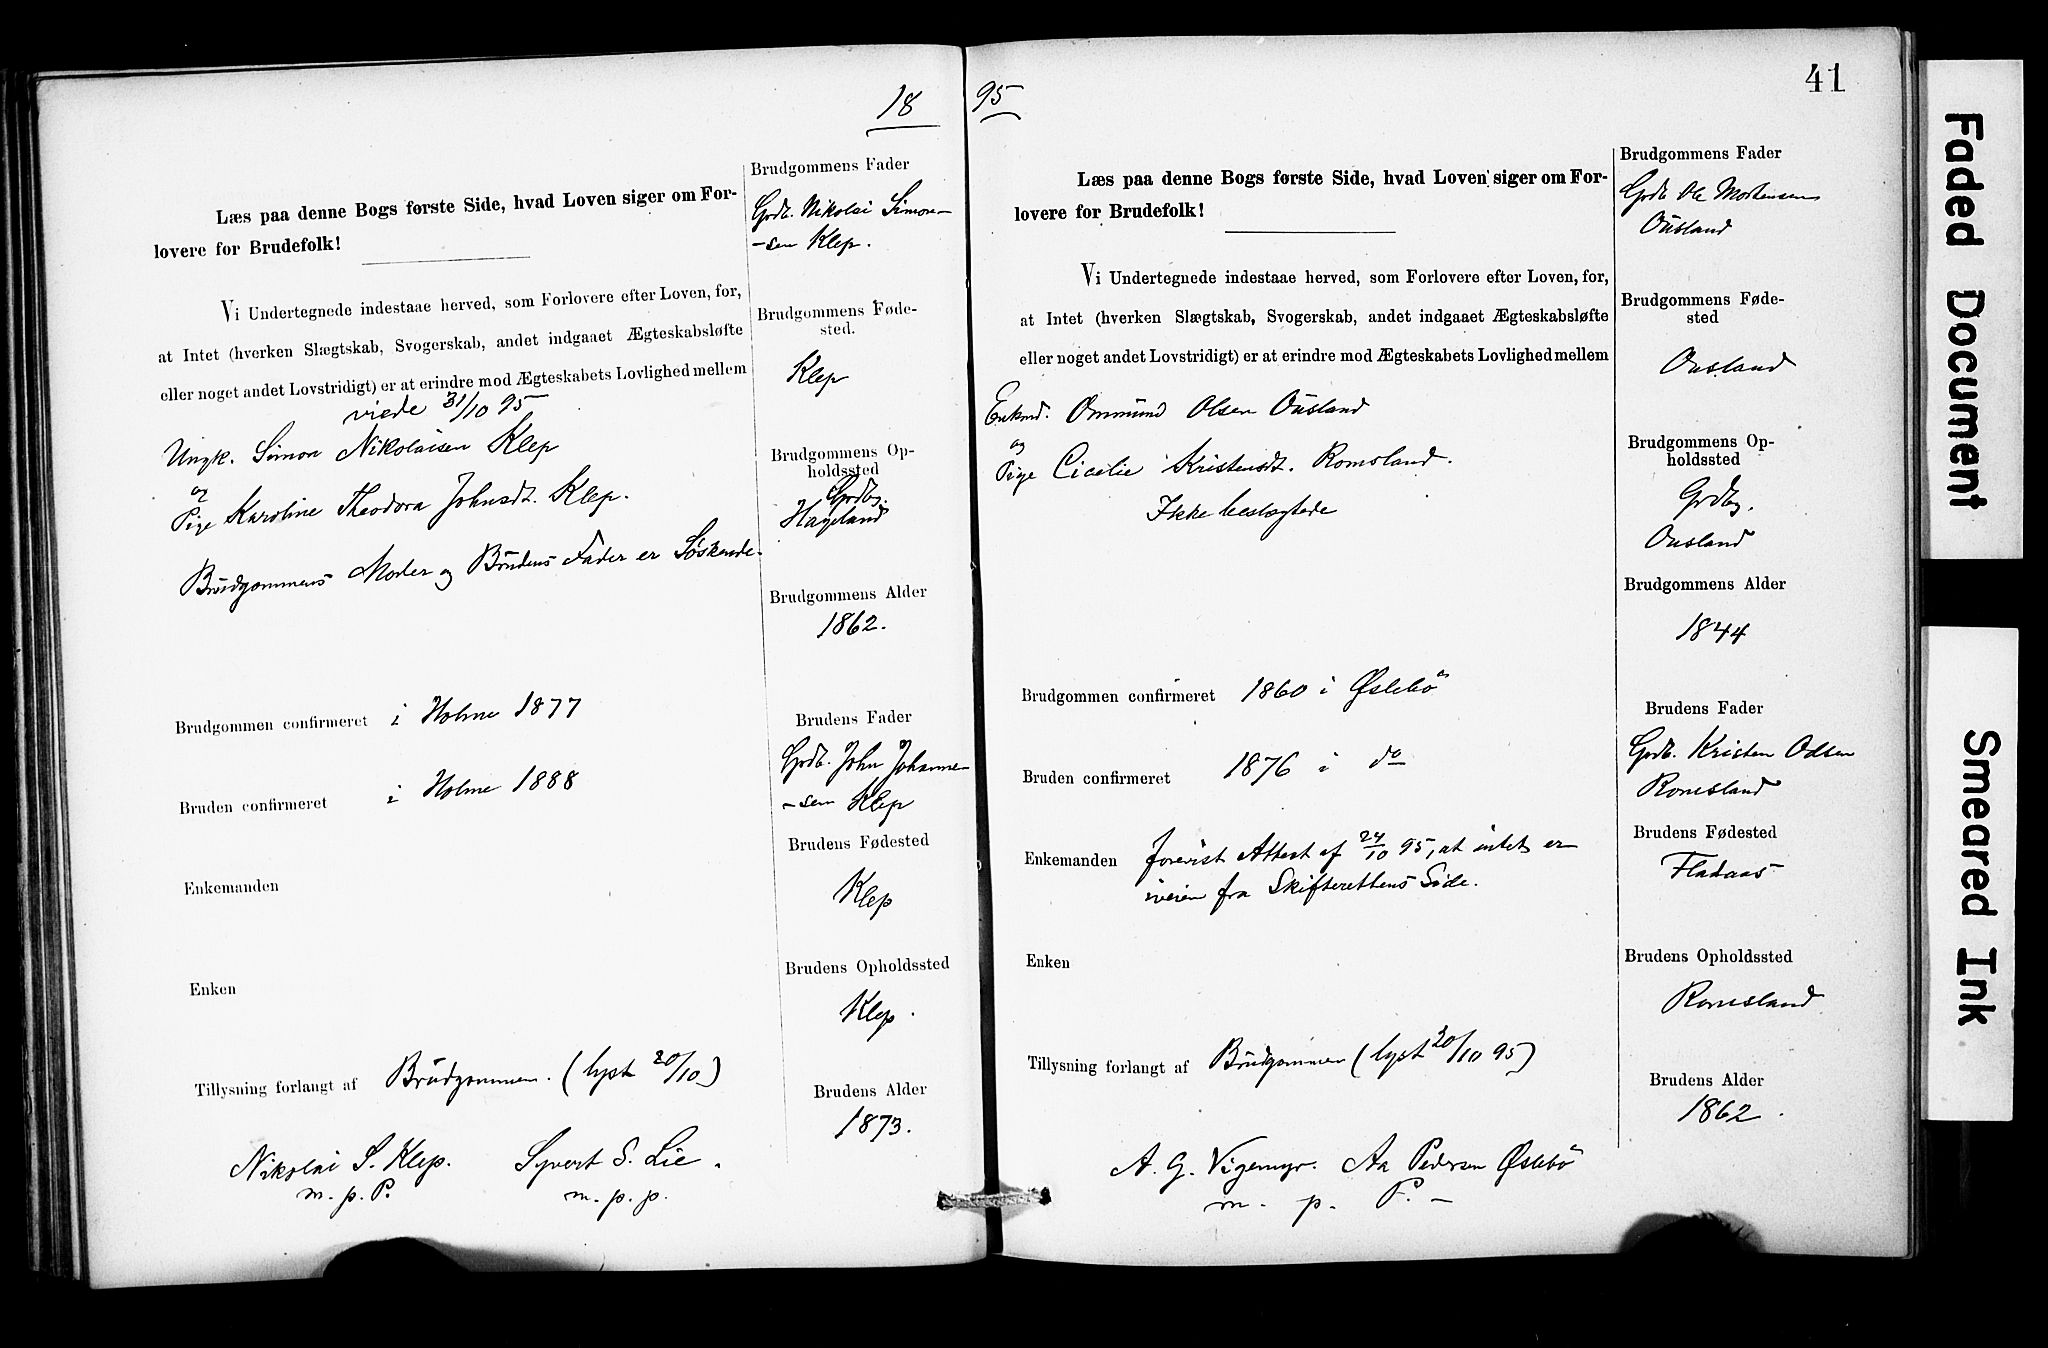 18
Læs paa denne Bogs første Side, hvad Loven siger om For-
lovere for Brudefolk!
Vi Undertegnede indestaae herved, som Forlovere efter Loven, for,
at Intet (hverken Slægtskab, Svogerskab, andet indgaaet Ægteskabsløfte
eller noget andet Lovstridigt) er at erindre mod Ægteskabets Lovlighed mellem
viede 31/10 95
Ungk. Simon Nikolaisen Klep
og
Pige Karoline Theodora Johnsdt. Klep.
Brudgommens Moder og Brudens Fader er Søskende.
Brudgommen confirmeret i Holme 1877
Bruden confirmeret i Holme 1888
Enkemanden
Enken
Tillysning forlangt af Brudgommen. (lyst 20/10)
Nikolai S. Klep. Syvert S. Lie.
m. p. P. m. p. p.
Brudgommens Fader
Grdb. Nikolai Simon-
-sen Klep.
Brudgommens Føde-
sted.
Klep
Brudgommens Op-
holdssted
Grdbg.
Hageland
Brudgommens Alder
1862.
Brudens Fader
Grdb. John Johanne-
-sen Klep
Brudens Fødested
Klep
Brudens Opholdssted
Klep.
Brudens Alder
1873.
95
41
Læs paa denne Bogs første Side, hvad Loven siger om For-
lovere for Brudefolk!
Vi Undertegnede indestaae herved, som Forlovere efter Loven, for,
at Intet (hverken Slægtskab, Svogerskab, andet indgaaet Ægteskabsløfte
eller noget andet Lovstridigt) er at erindre mod Ægteskabets Lovlighed mellem
Enkmd. Ommund Olsen Ousland
og
Pige Cicelie Kristensdt. Romsland.
Ikke beslægtede
Brudgommen confirmeret 1860 i Øslebö
Bruden confirmeret 1876 i do
Enkemanden forevist Attest af 24/10 95, at intet er
iveien fra Skifterettens Side.
Enken
Tillysning forlangt af Brudgommen (lyst 20/10 95)
A. G. Vigemyr. Aa Pedersen Øslebö
m. p. P. -
Brudgommens Fader
Grdb Ole Mortensen
Ousland
Brudgommens Føde-
sted
Ousland
Brudgommens Op-
holdssted
Grdbg.
Ousland
Brudgommens Alder
1844
Brudens Fader
Grdb. Kristen Odsen
Romsland
Brudens Fødested
Fladaas
Brudens Opholdssted
Romsland
Brudens Alder
1862.
Faded Document
Smeared Ink